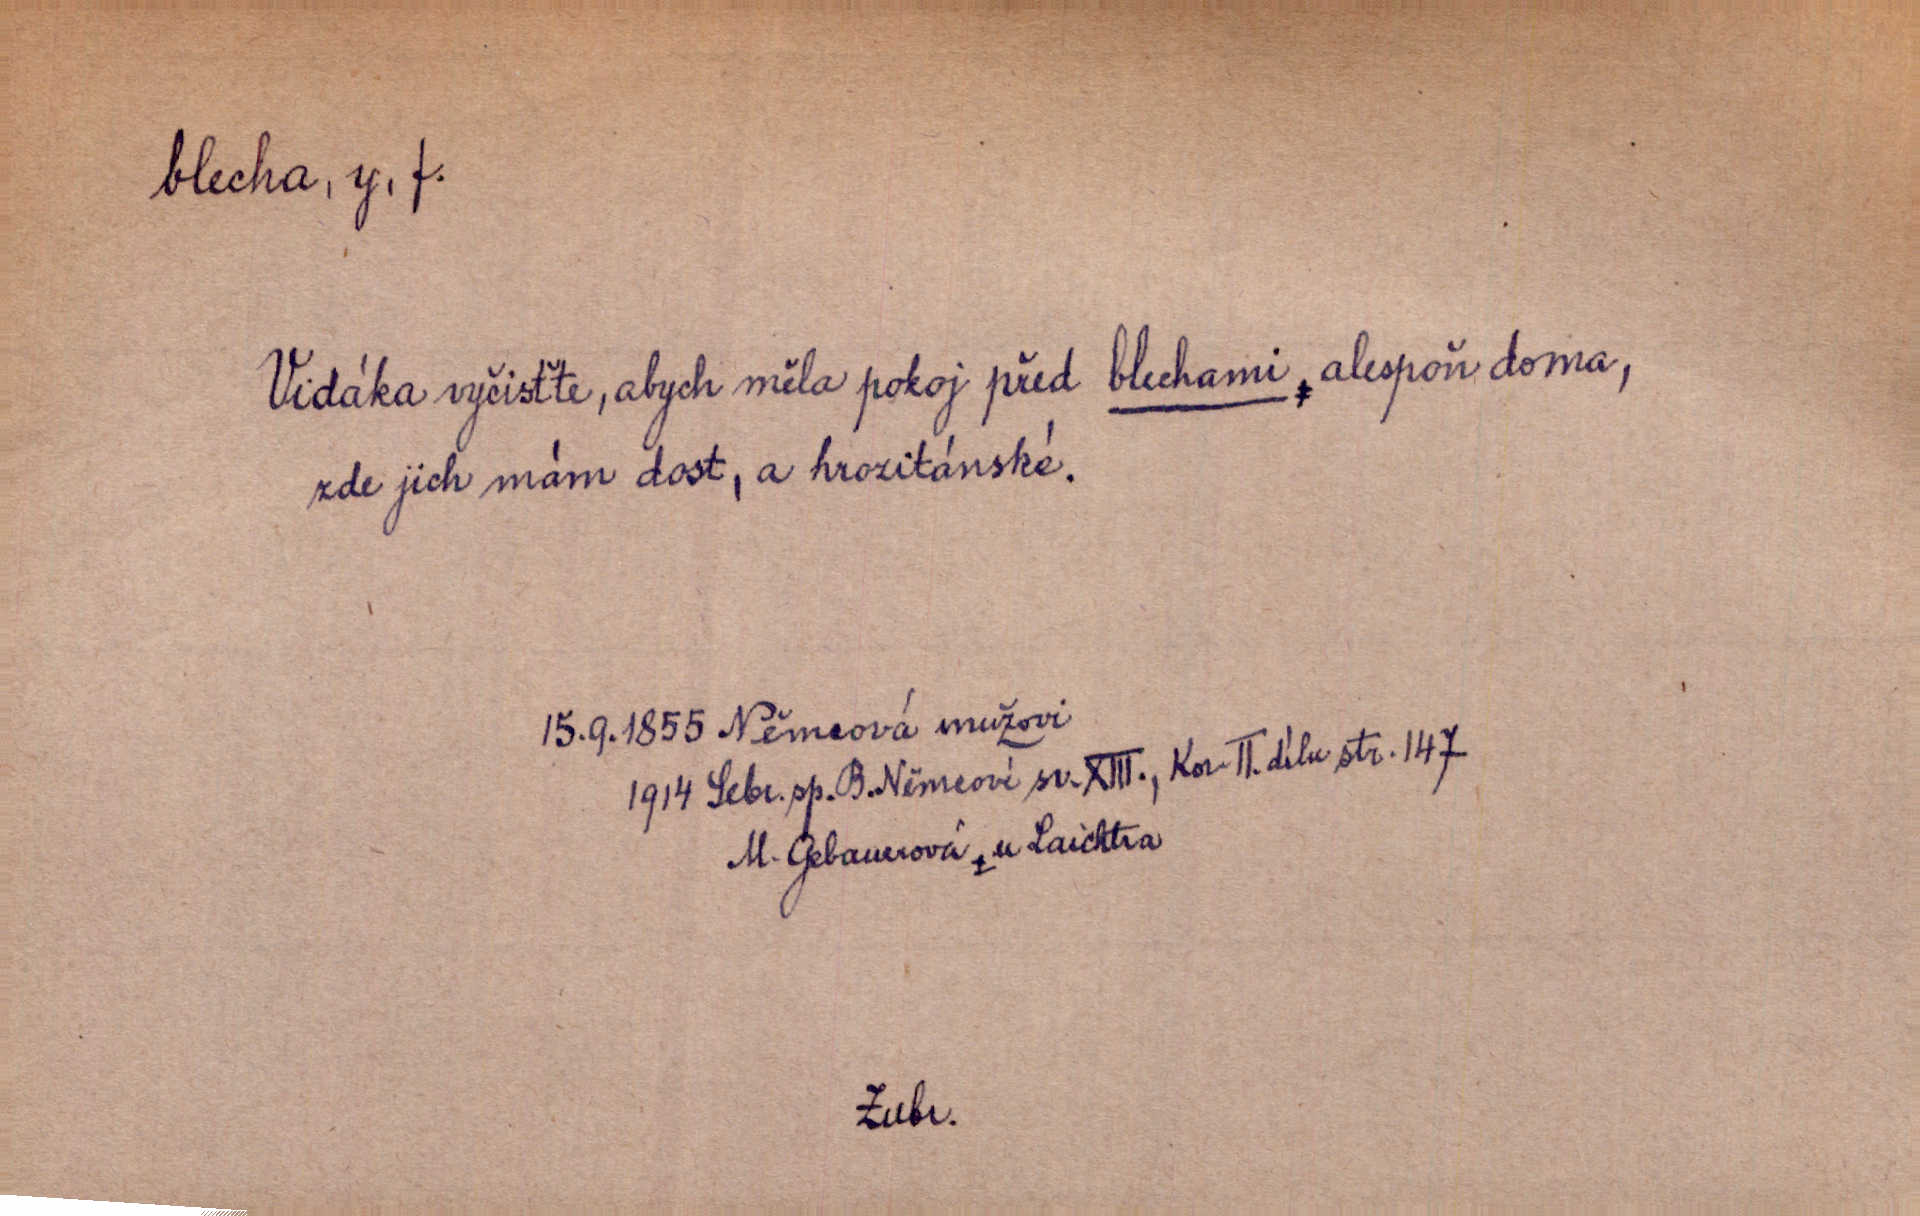 blecha, y, f.
Vidáka vyčisťte, abych měla pokoj před blechami, alespoň doma,
zde jich mám dost, a hrozitánské.
15.9.1855 Němcová mužovi
1914 Sebr. sp. B. Němcové sv. XIII., Kor. II. dílu str. 147
M. Gebauerová, u Laichtra
Zubr.